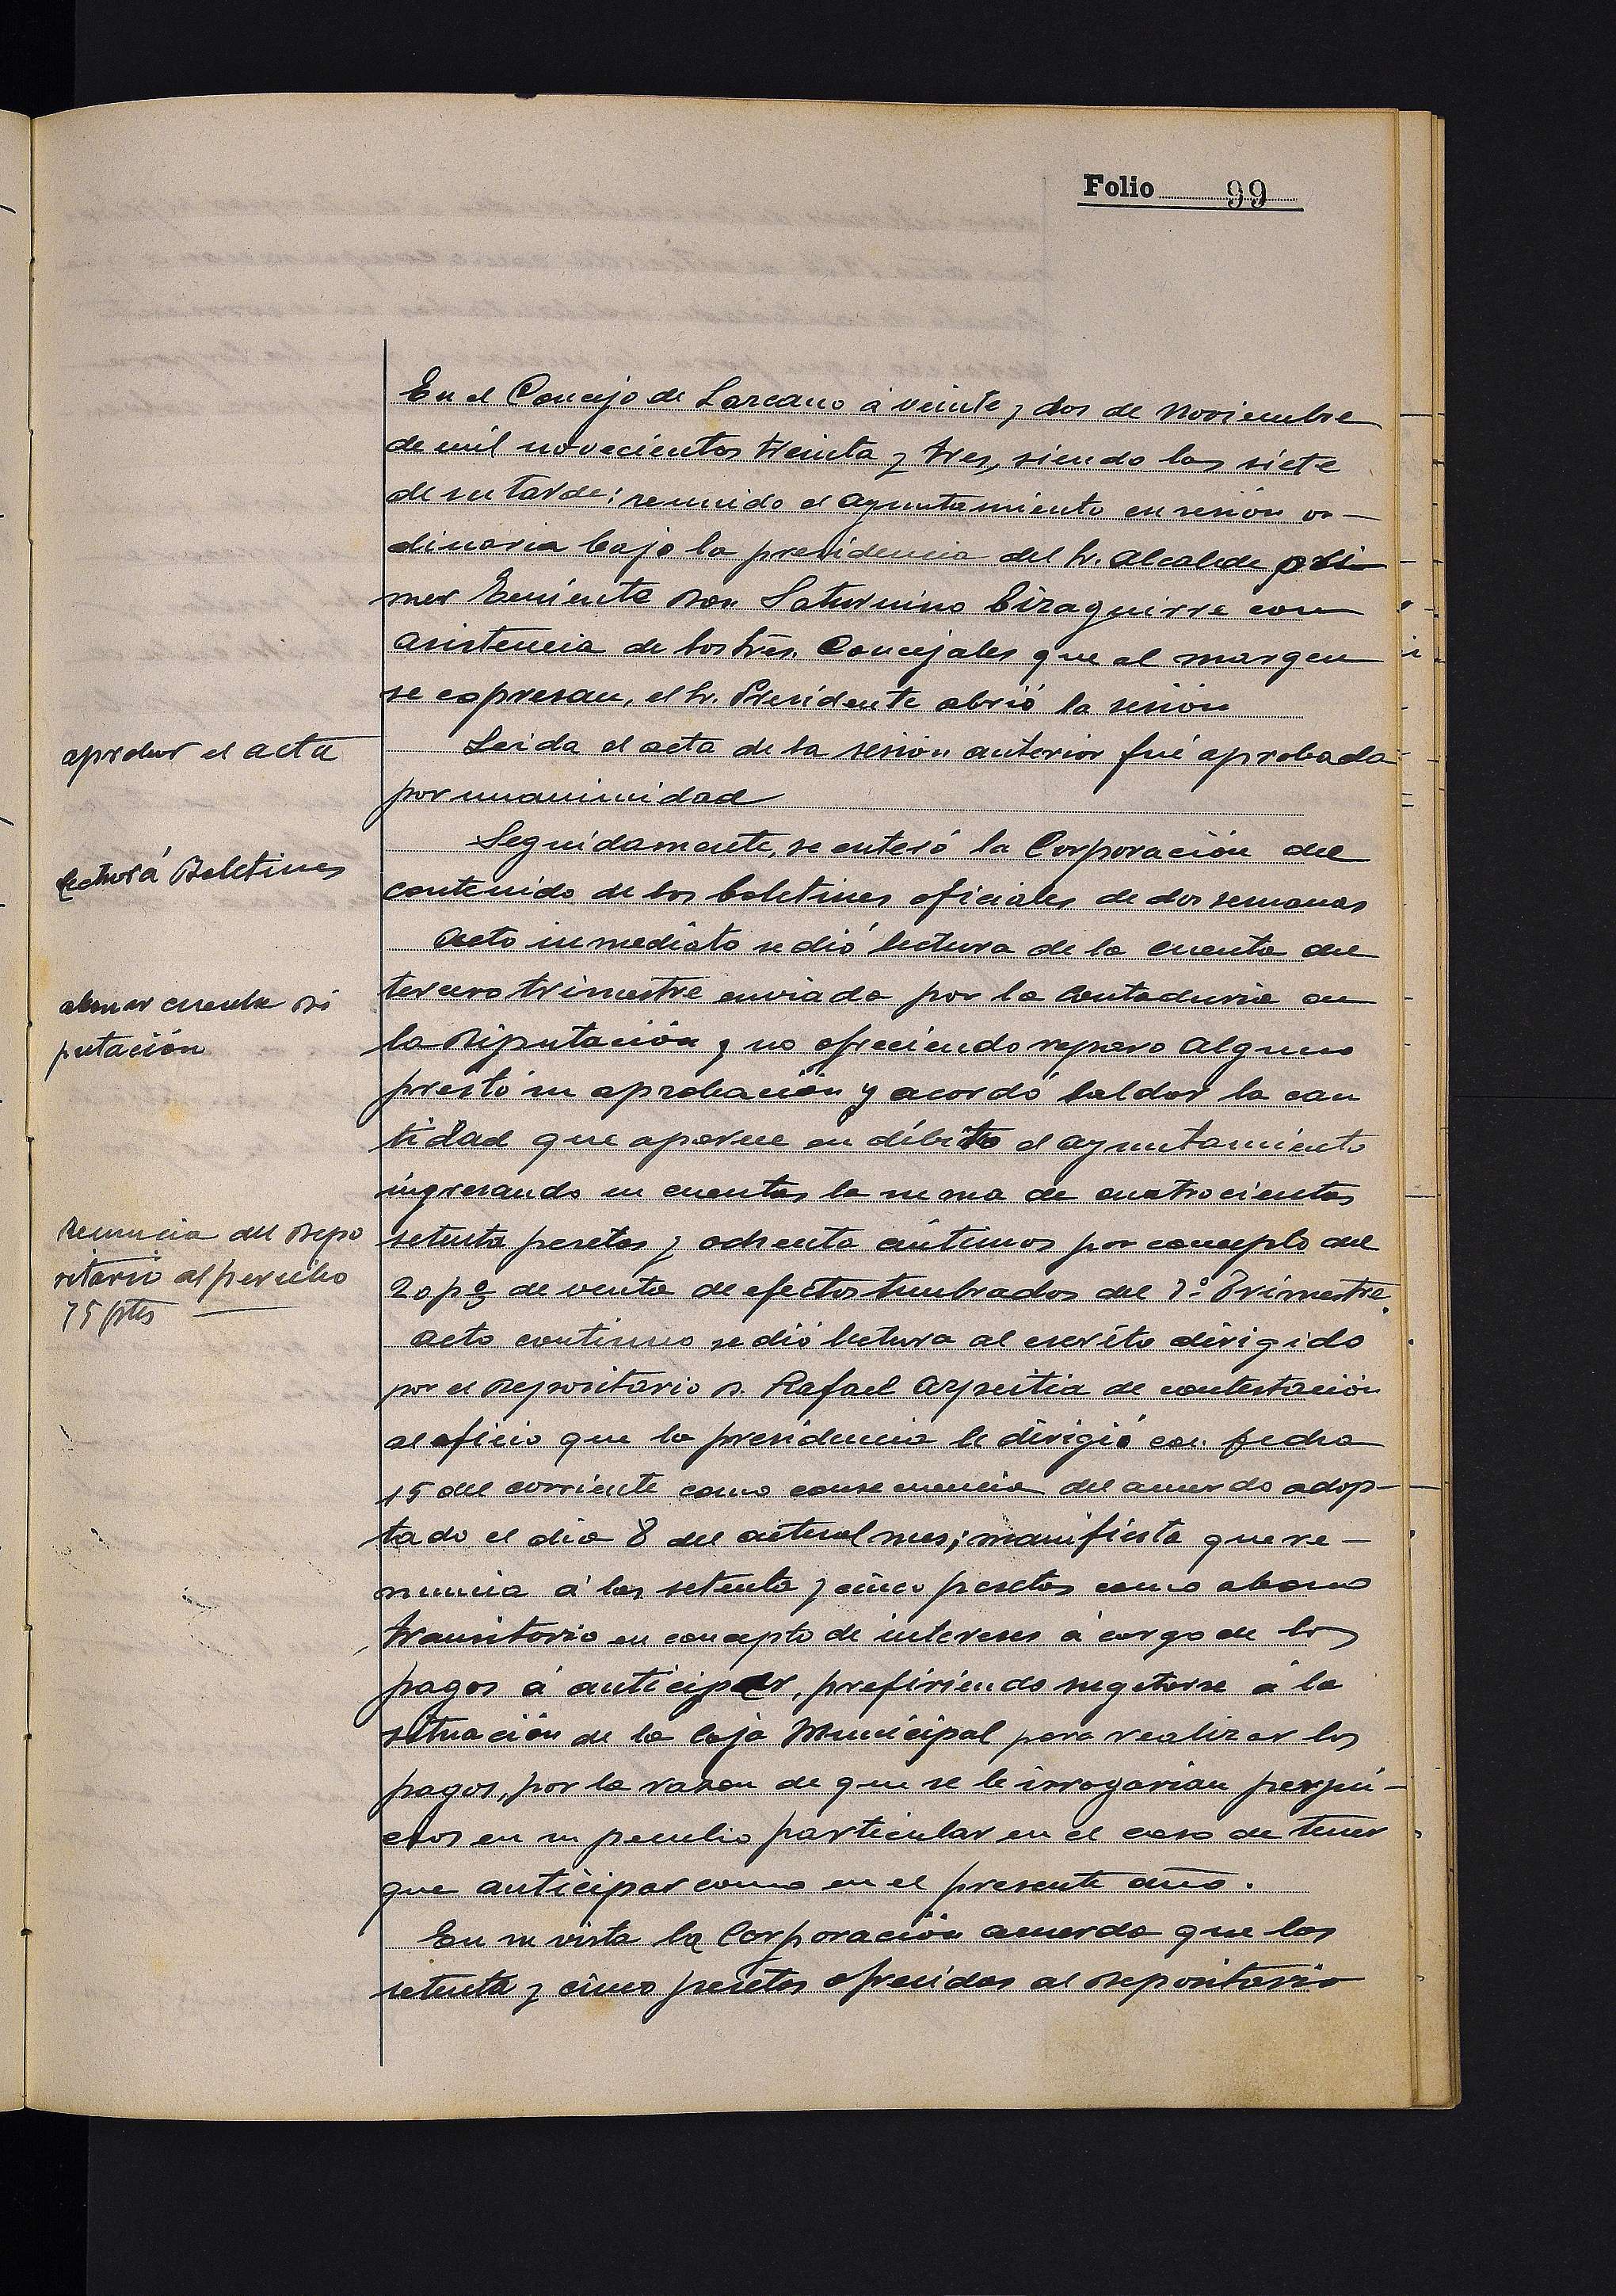 Folio 99
En el Concejo de Lazcano á veinte y dos de Noviembre
de mil novecientos treinta y tres, siendo las siete
de su tarde: reunido el Ayuntamiento en sesión or-
dinaria bajo la presidencia del Sr. Alcalde pri-
mer Teniente Don Saturnino Eizaguirre con
asistencia de los Sres. Concejales que al margen
se expresan, el Sr. Presidente abrió la sesión
aprobar el acta
Leida el acta de la sesión anterior fué aprobada
por unanimidad
Lectura Boletines
Seguidamente, se enteró la Corporación del
contenido de los boletines oficiales de dos semanas
abonar cuenta Di
putación
Acto inmediato se dió lectura de la cuenta del
tercero trimestre enviada por la Contaduria de
la Diputación y no ofreciendo reparo alguno
prestó su aprobación y acordó saldar la can
tidad que aparece en débito el Ayuntamiento
ingresando en cuentas la suma de cuatrocientas
setenta pesetas y ochenta céntimos por concepto del
20 p% de venta de efectos timbrados del 3º Trimestre.
Renuncia del Depo
sitario al percibo
75 ptas
Acto continuo se dió lectura al escrito dirigido
por el Depositario D. Rafael Azpeitia de contestación
al oficio que la presidencia le dirigió con fecha
15 del corriente como consecuencia del acuerdo adop-
tado el dia 8 del actual mes; manifiesta que re-
nuncia á las setenta y cinco pesetas como abono
transitorio en concepto de intereses á cargo de los
pagos á anticipar, prefiriendo sugetarse á la
situación de la Caja Municipal para realizar los
pagos, por la razon de que se le irrogarian perjui-
cios en su peculio particular en el caso de tener
que anticipar como en el presente año.
En su vista la Corporación acuerda que las
setenta y cinco pesetas ofrecidas al Depositario